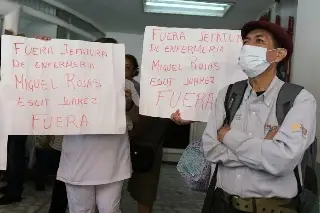 FUERA JEFATURA
DE ENFERMERIA
MIGUEL ROJAS
ESGIT JUAREZ
FUERA
FUERA JEFATURA
DE ENFERMERIA
MIGUEL ROJAS
ESGIT JUAREZ
FUERA